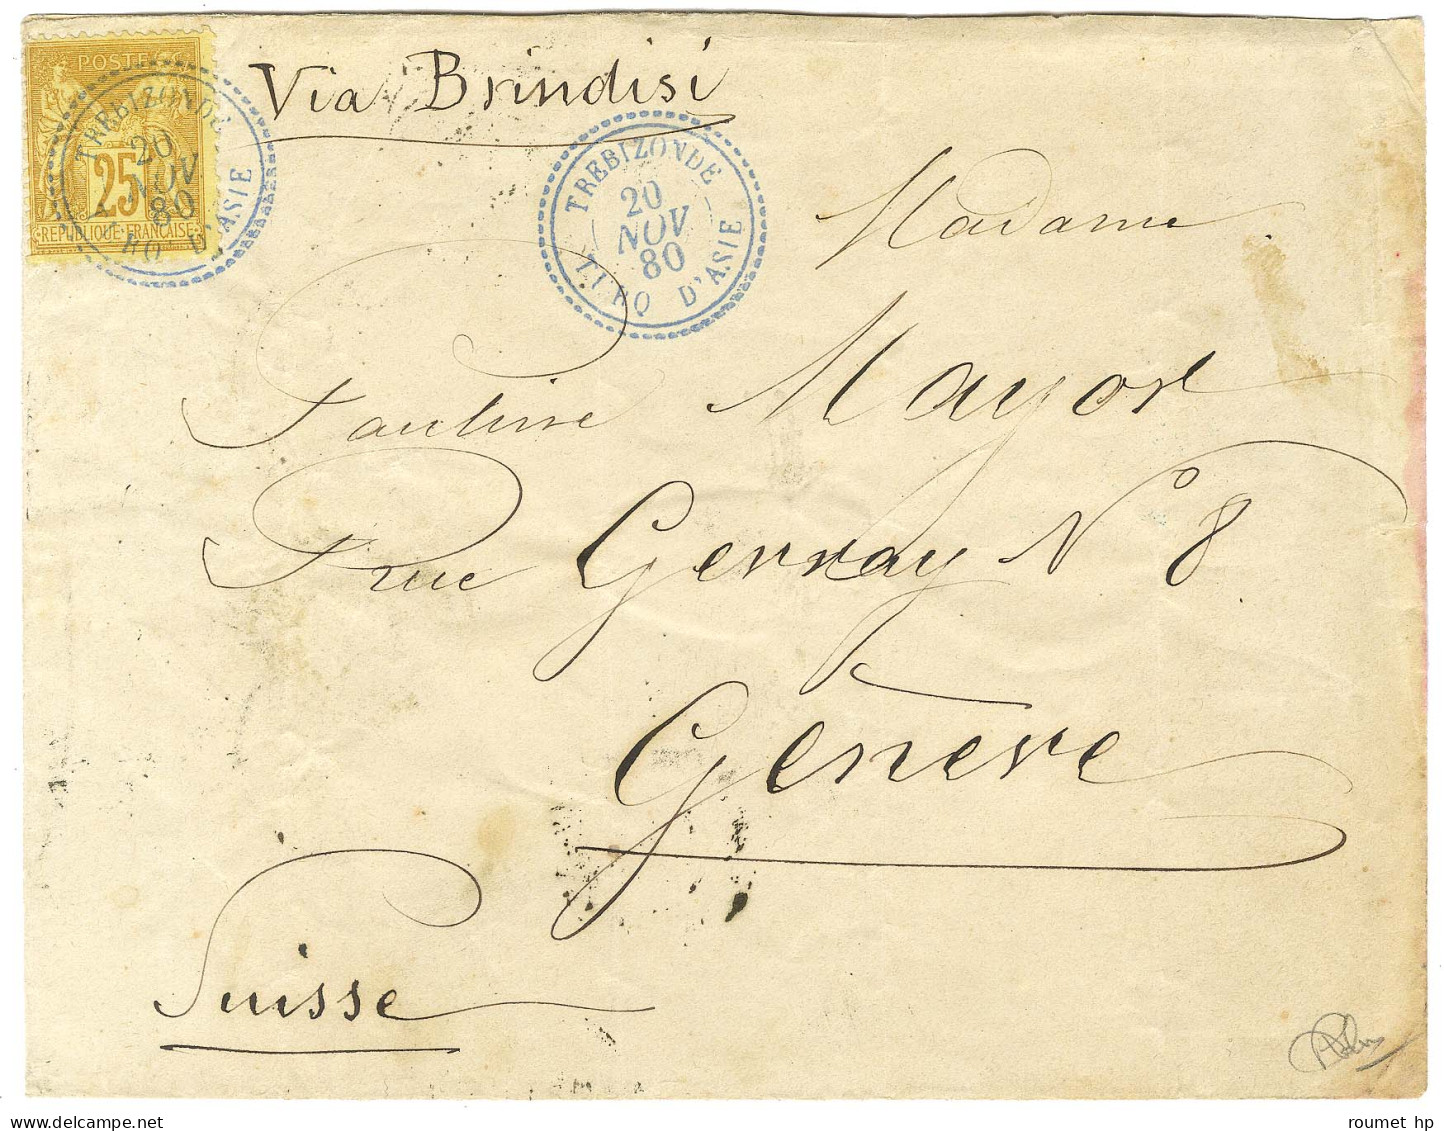 Via Brindisi
POSTE
25
REPUBLIQUE FRANCAISE
TREBIZONDE
20
NOV
80
RQ D'ASIE
TREBIZONDE
20
NOV
80
TURQ D'ASIE
Madame
Pauline Mayor
Rue Gevray N 8
Genève
Suisse
roumet hp